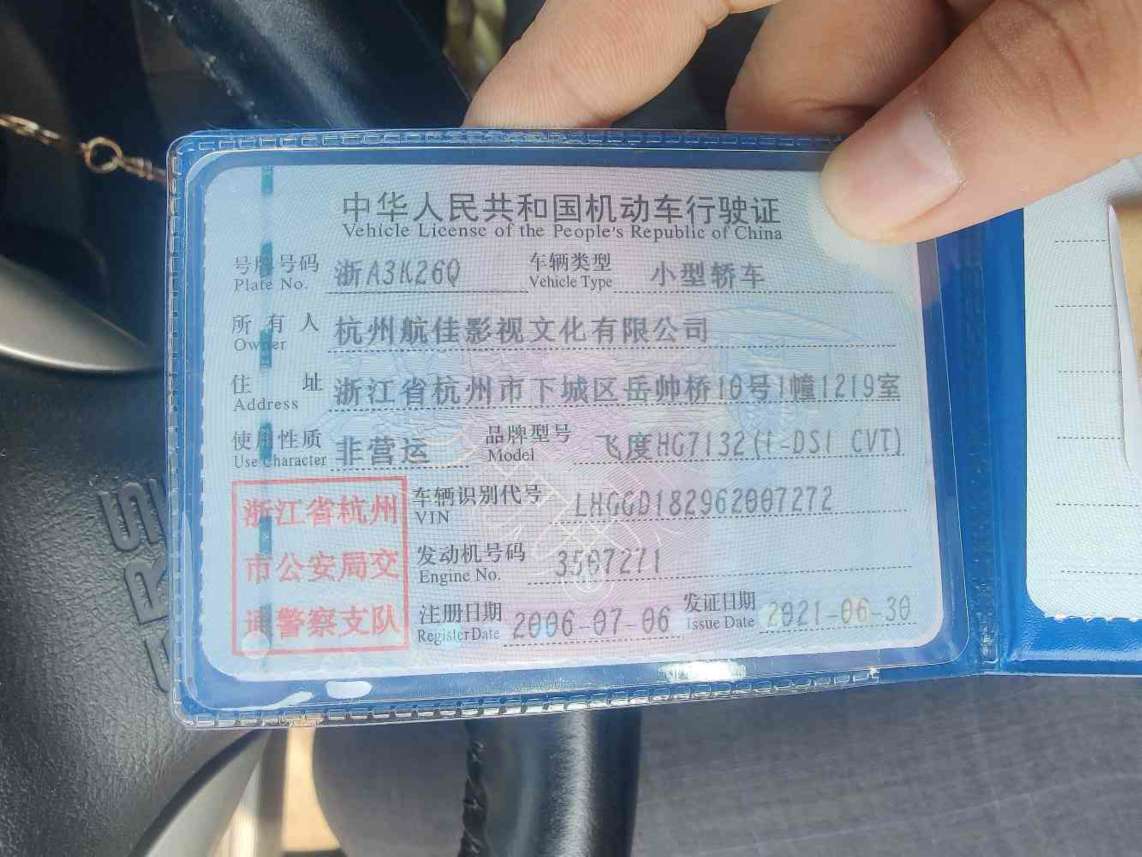 中华人民共和国机动车行驶证
Vehicle License of the People's Republic of China
号牌号码 浙A3K26Q 车辆类型 小型轿车
Plate No. Vehicle Type
所有人 杭州航佳影视文化有限公司
Owner
住址 浙江省杭州市下城区岳帅桥10号1幢1219室
Address
使用性质 非营运 品牌型号 飞度HG7132(i-DSI CVT)
Use Character Model
浙江省杭州
市公安局交
通警察支队
车辆识别代号 LHGGD182962007272
VIN
发动机号码 3507271
Engine No.
注册日期 2006-07-06 发证日期 2021-06-30
Register Date Issue Date
SRS